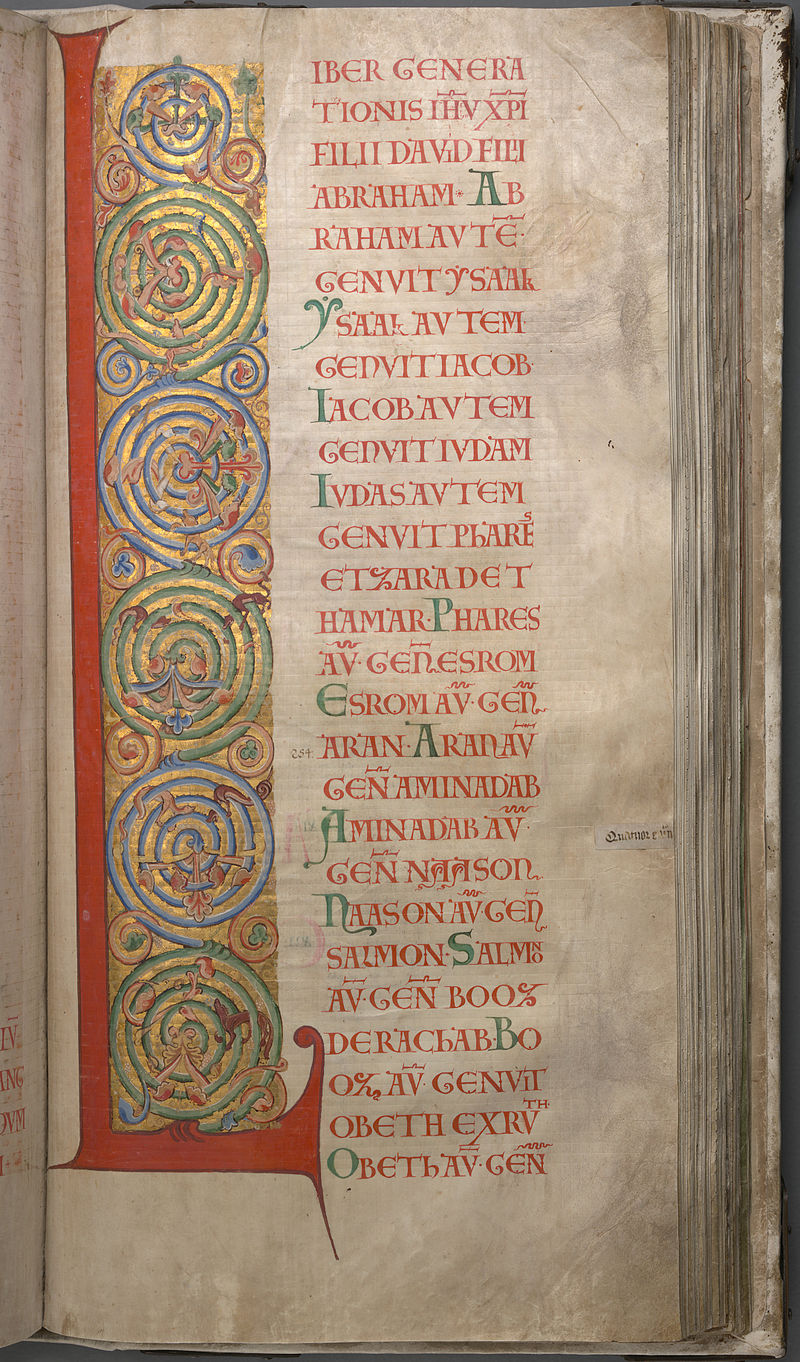 LIBER GENERA
TIONIS IHV XPI
FILII DAVID FILII
ABRAHAM· AB
RAHAM AVTĒ·
GENVIT YSAAK
YSAAK AVTEM
GENVIT IACOB·
IACOB AVTEM
GENVIT IVDAM
IVDAS AVTEM
GENVIT PHARES
ET ZARA DE T
HAMAR· PHARES
AV̄· GEN̄· ESROM
ESROM AV̄· GEN̄·
254· ARAN· ARAN AV̄
GEN̄ AMINADAB
AMINADAB AV̄·
GEN̄ NAASON·
NAASON AV̄· GEN̄
SALMON· SALMON
AV̄· GEN̄ BOOZ
DE RACHAB· BO
OZ, AV̄· GENVIT
OBETH EX RVTH
OBETH AV̄· GEN̄
LV̄
ANG
DVM